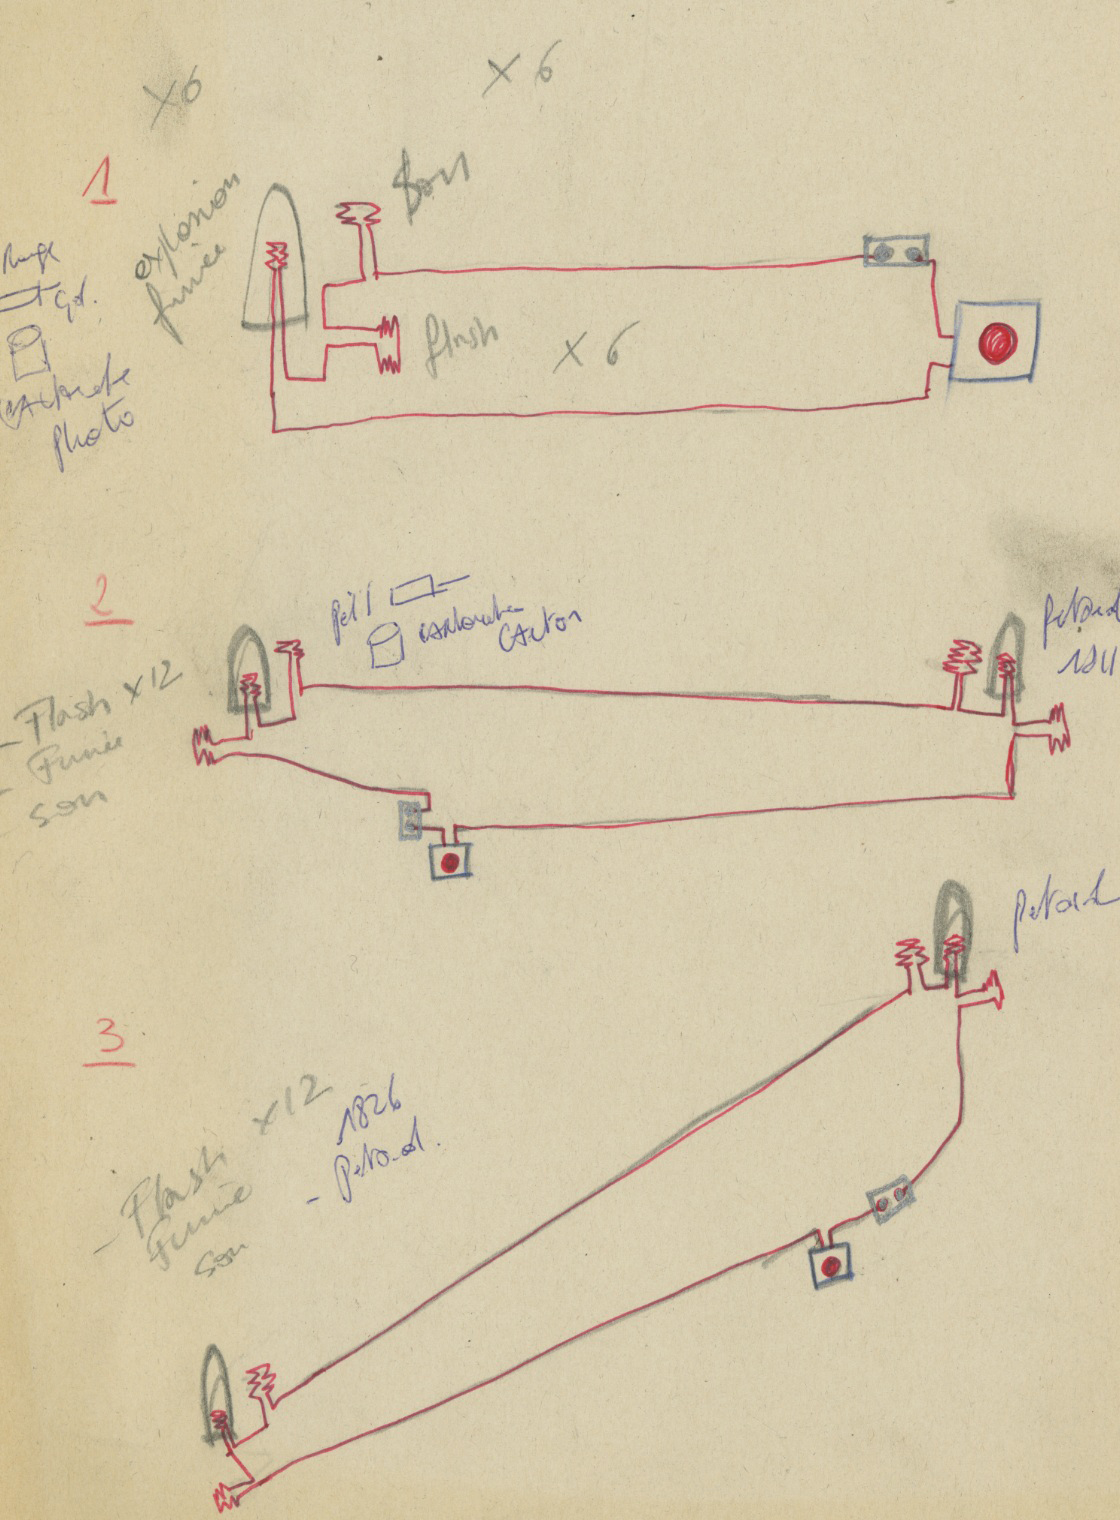 x6
x6
1
son
explosion
fumée
Rouge
flash x6
Photo
2
petit
cartouche
carton
petard
Flash x12
- Fumée
- son
petard
3
x12
1826
- Petard.
- Flash
Fumée
son